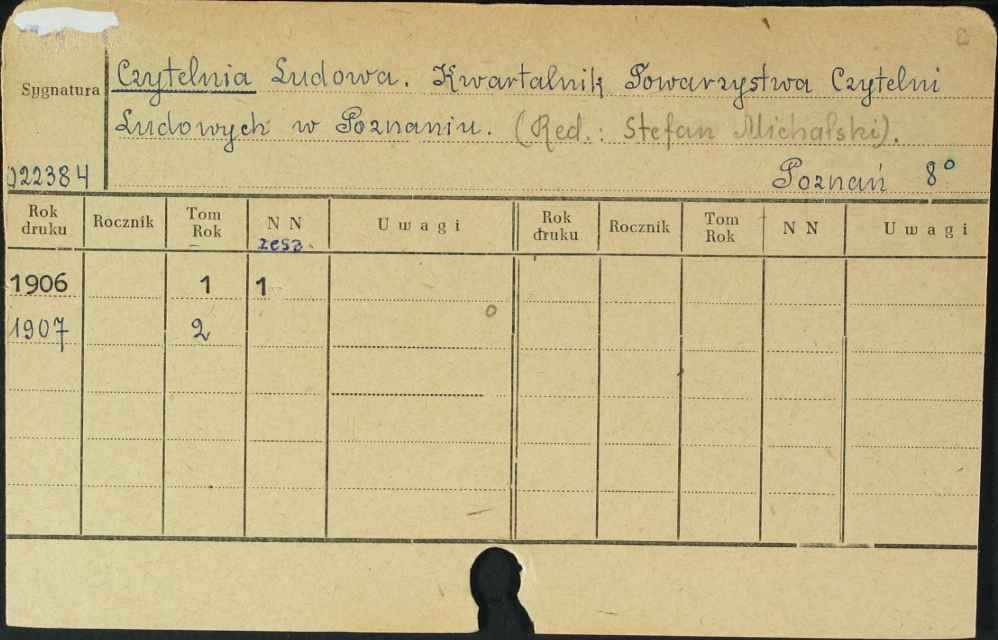 Sygnatura
Czytelnia Ludowa. Kwartalnik Towarzystwa Czytelni
Ludowych w Poznaniu. (Red.: Stefan Michalski).
022384
Poznań 8°
Rok druku Rocznik Tom Rok N N Uwagi Rok druku Rocznik Tom Rok N N Uwagi
zesz.
1906 1 1
1907 2